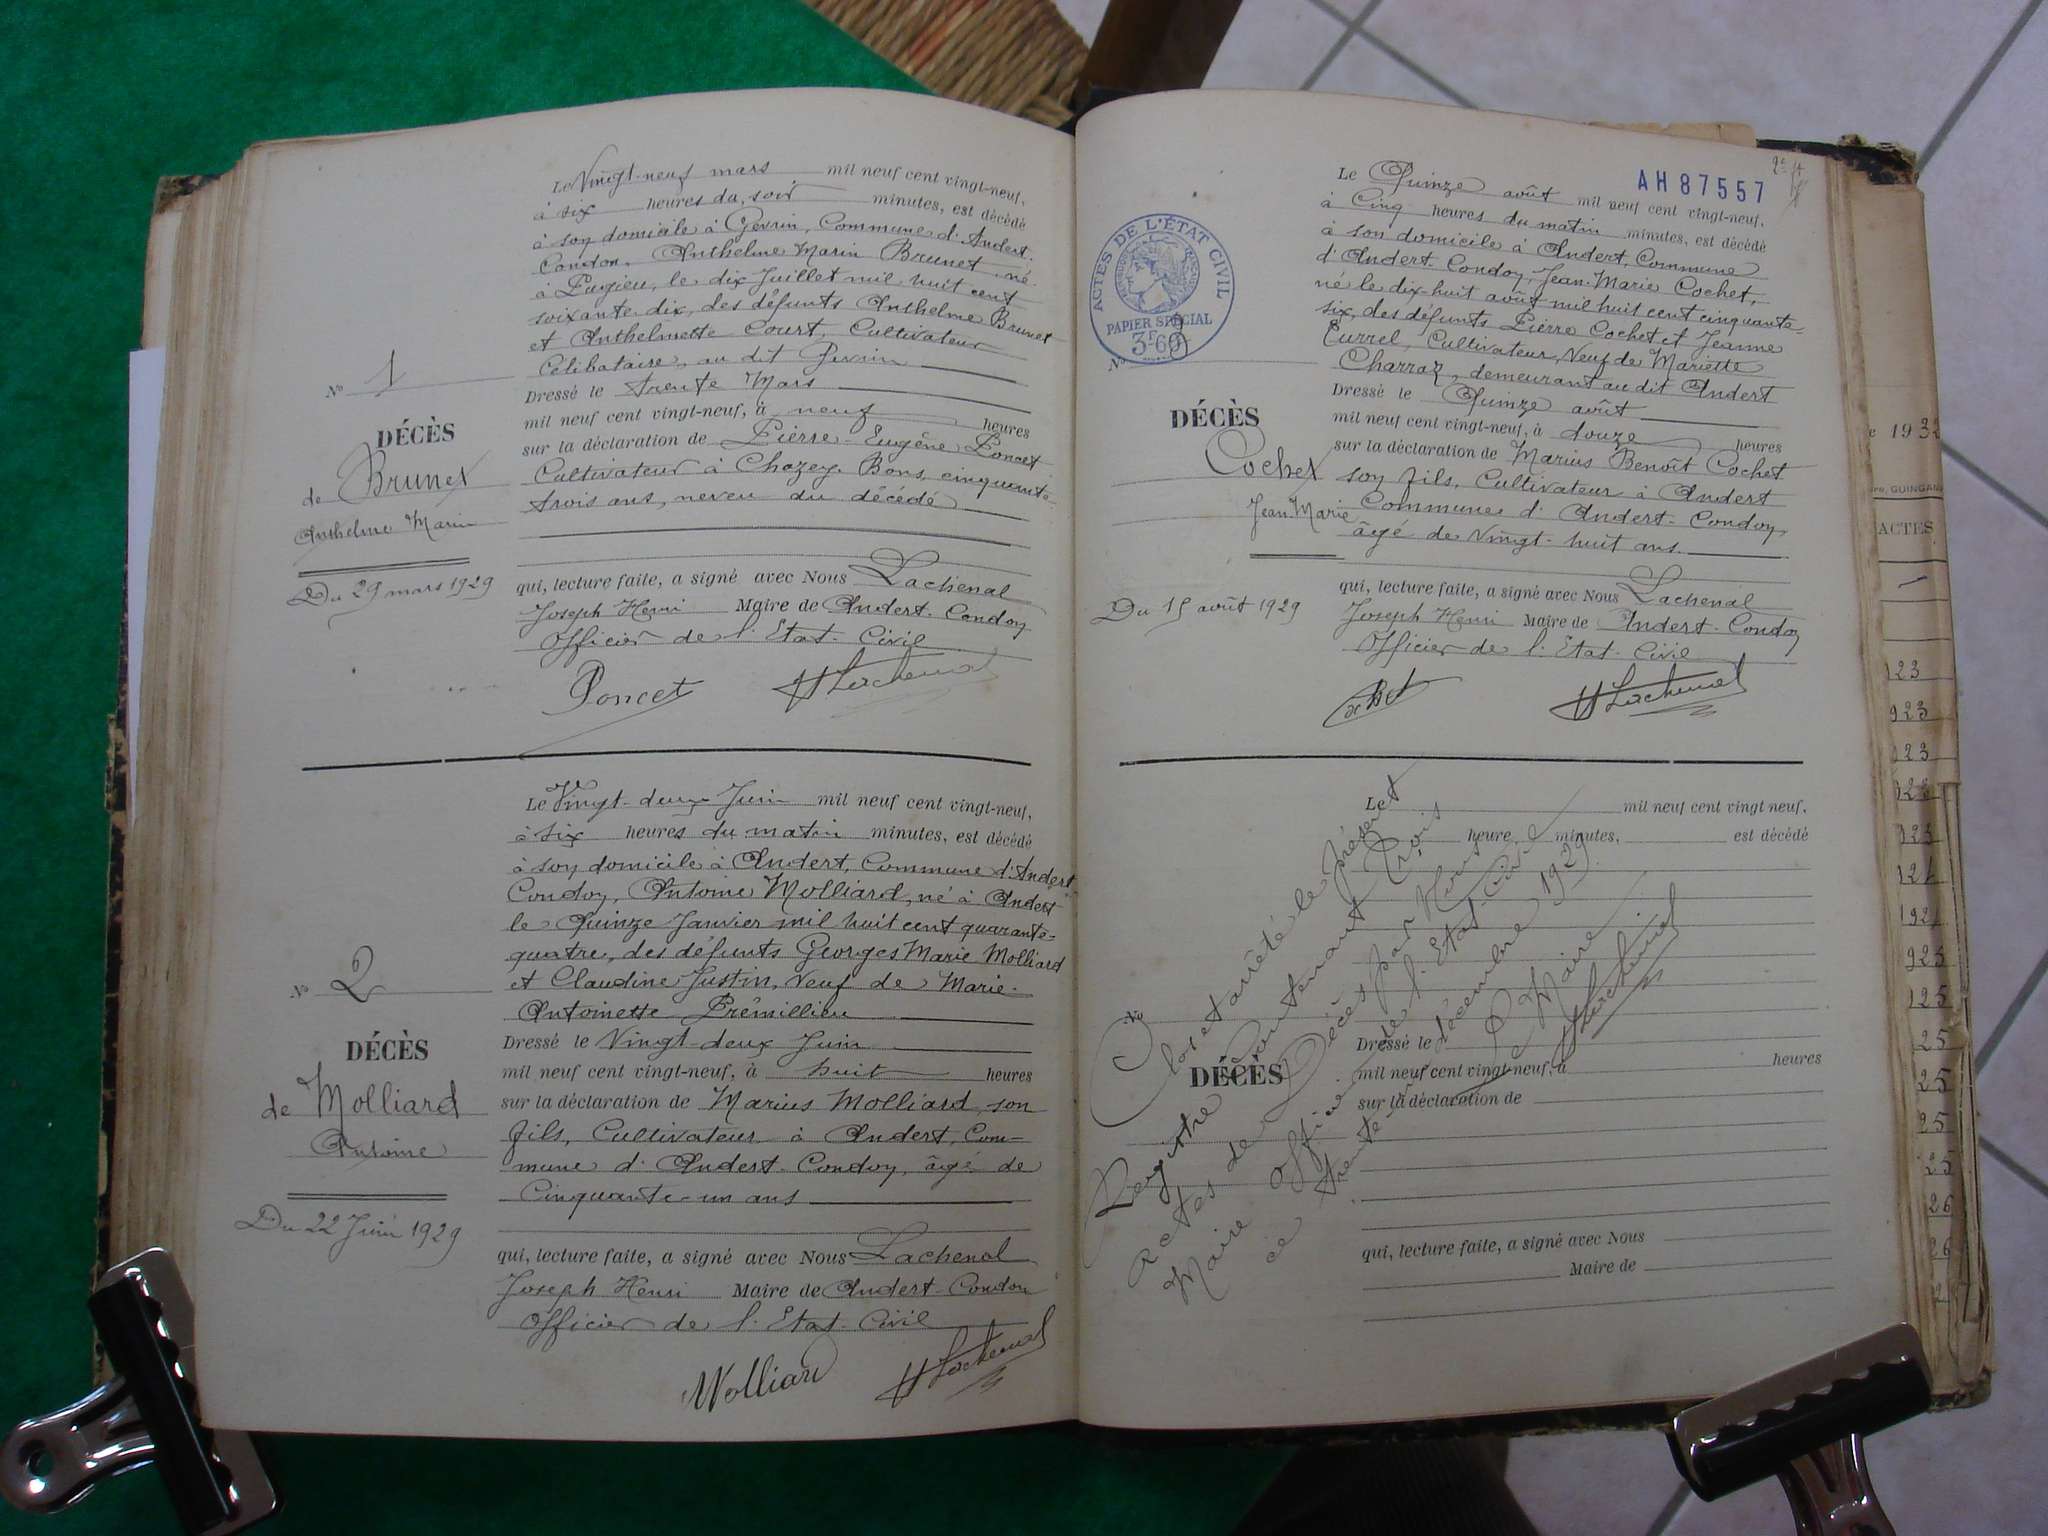 Le Vingt-neuf mars mil neuf cent vingt-neuf,
à six heures du soir minutes, est décédé
à son domicile à Gevrin, Commune d'Andert
Condon, Anthelme Marin Brunet, né
à Pugieu, le dix Juillet mil huit cent
soixante dix, des défunts Anthelme Brunet
et Anthelmette Court, Cultivateur
Célibataire, au dit
Nº 1
DÉCÈS
de Brunet
Anthelme Marin
Du 29 mars 1929
Dressé le trente Mars
mil neuf cent vingt-neuf, à neuf heures
sur la déclaration de Pierre-Eugène Poncet
Cultivateur à Chazey-Bons, cinquante
trois ans, neveu du décédé
qui, lecture faite, a signé avec Nous Lachenal
Joseph Henri Maire de Andert-Condon
Officier de l'Etat-Civil
Poncet HLachenal
Le Vingt-deux Juin mil neuf cent vingt-neuf,
à six heures du matin minutes, est décédé
à son domicile à Andert, Commune d'Andert
Condon, Antoine Molliard, né à Andert
le Quinze Janvier mil huit cent quarante-
quatre, des défunts Georges Marie Molliard
et Claudine Justin, Veuf de Marie-
Antoinette Prémillieu
Nº 2
DÉCÈS
de Molliard
Antoine
Du 22 Juin 1929
Dressé le Vingt-deux Juin
mil neuf cent vingt-neuf, à huit heures
sur la déclaration de Marius Molliard, son
fils, Cultivateur à Andert, Com-
mune d'Andert-Condon, âgé de
Cinquante-un ans
qui, lecture faite, a signé avec Nous Lachenal
Joseph Henri Maire de Andert-Condon
Officier de l'Etat-Civil
Molliard HLachenal
AH 87557
ACTES DE L'ÉTAT CIVIL
PAPIER SPÉCIAL
3F60
Le Quinze août mil neuf cent vingt-neuf,
à Cinq heures du matin minutes, est décédé
à son domicile à Andert, Commune
d'Andert-Condon, Jean-Marie Cochet,
né le dix-huit août mil huit cent cinquante-
six, des défunts Pierre Cochet et Jeanne
Turrel, Cultivateur, Veuf de Mariette
Charraz, demeurant au dit Andert
Nº 3
DÉCÈS
Cochet
Jean-Marie
Du 15 août 1929
Dressé le Quinze août
mil neuf cent vingt-neuf, à douze heures
sur la déclaration de Marius Benoît Cochet
son fils, Cultivateur à Andert
Commune d'Andert-Condon,
âgé de Vingt-huit ans
qui, lecture faite, a signé avec Nous Lachenal
Joseph Henri Maire de Andert-Condon
Officier de l'Etat-Civil
HLachenal
Le mil neuf cent vingt neuf,
heure minutes, est décédé
Nº
DÉCÈS
Dressé le
mil neuf cent vingt-neuf, à heures
sur la déclaration de
qui, lecture faite, a signé avec Nous
Maire de
Clos et arrêté le présent
Registre Contenant Trois
Actes de Décès par Nous
Maire Officier de l'Etat-Civil
ce trente-un décembre 1929
Le Maire
HLachenal
1932
GUINGAN
ACTES
123
923
123
123
124
192
923
125
25
25
25
25
26
26